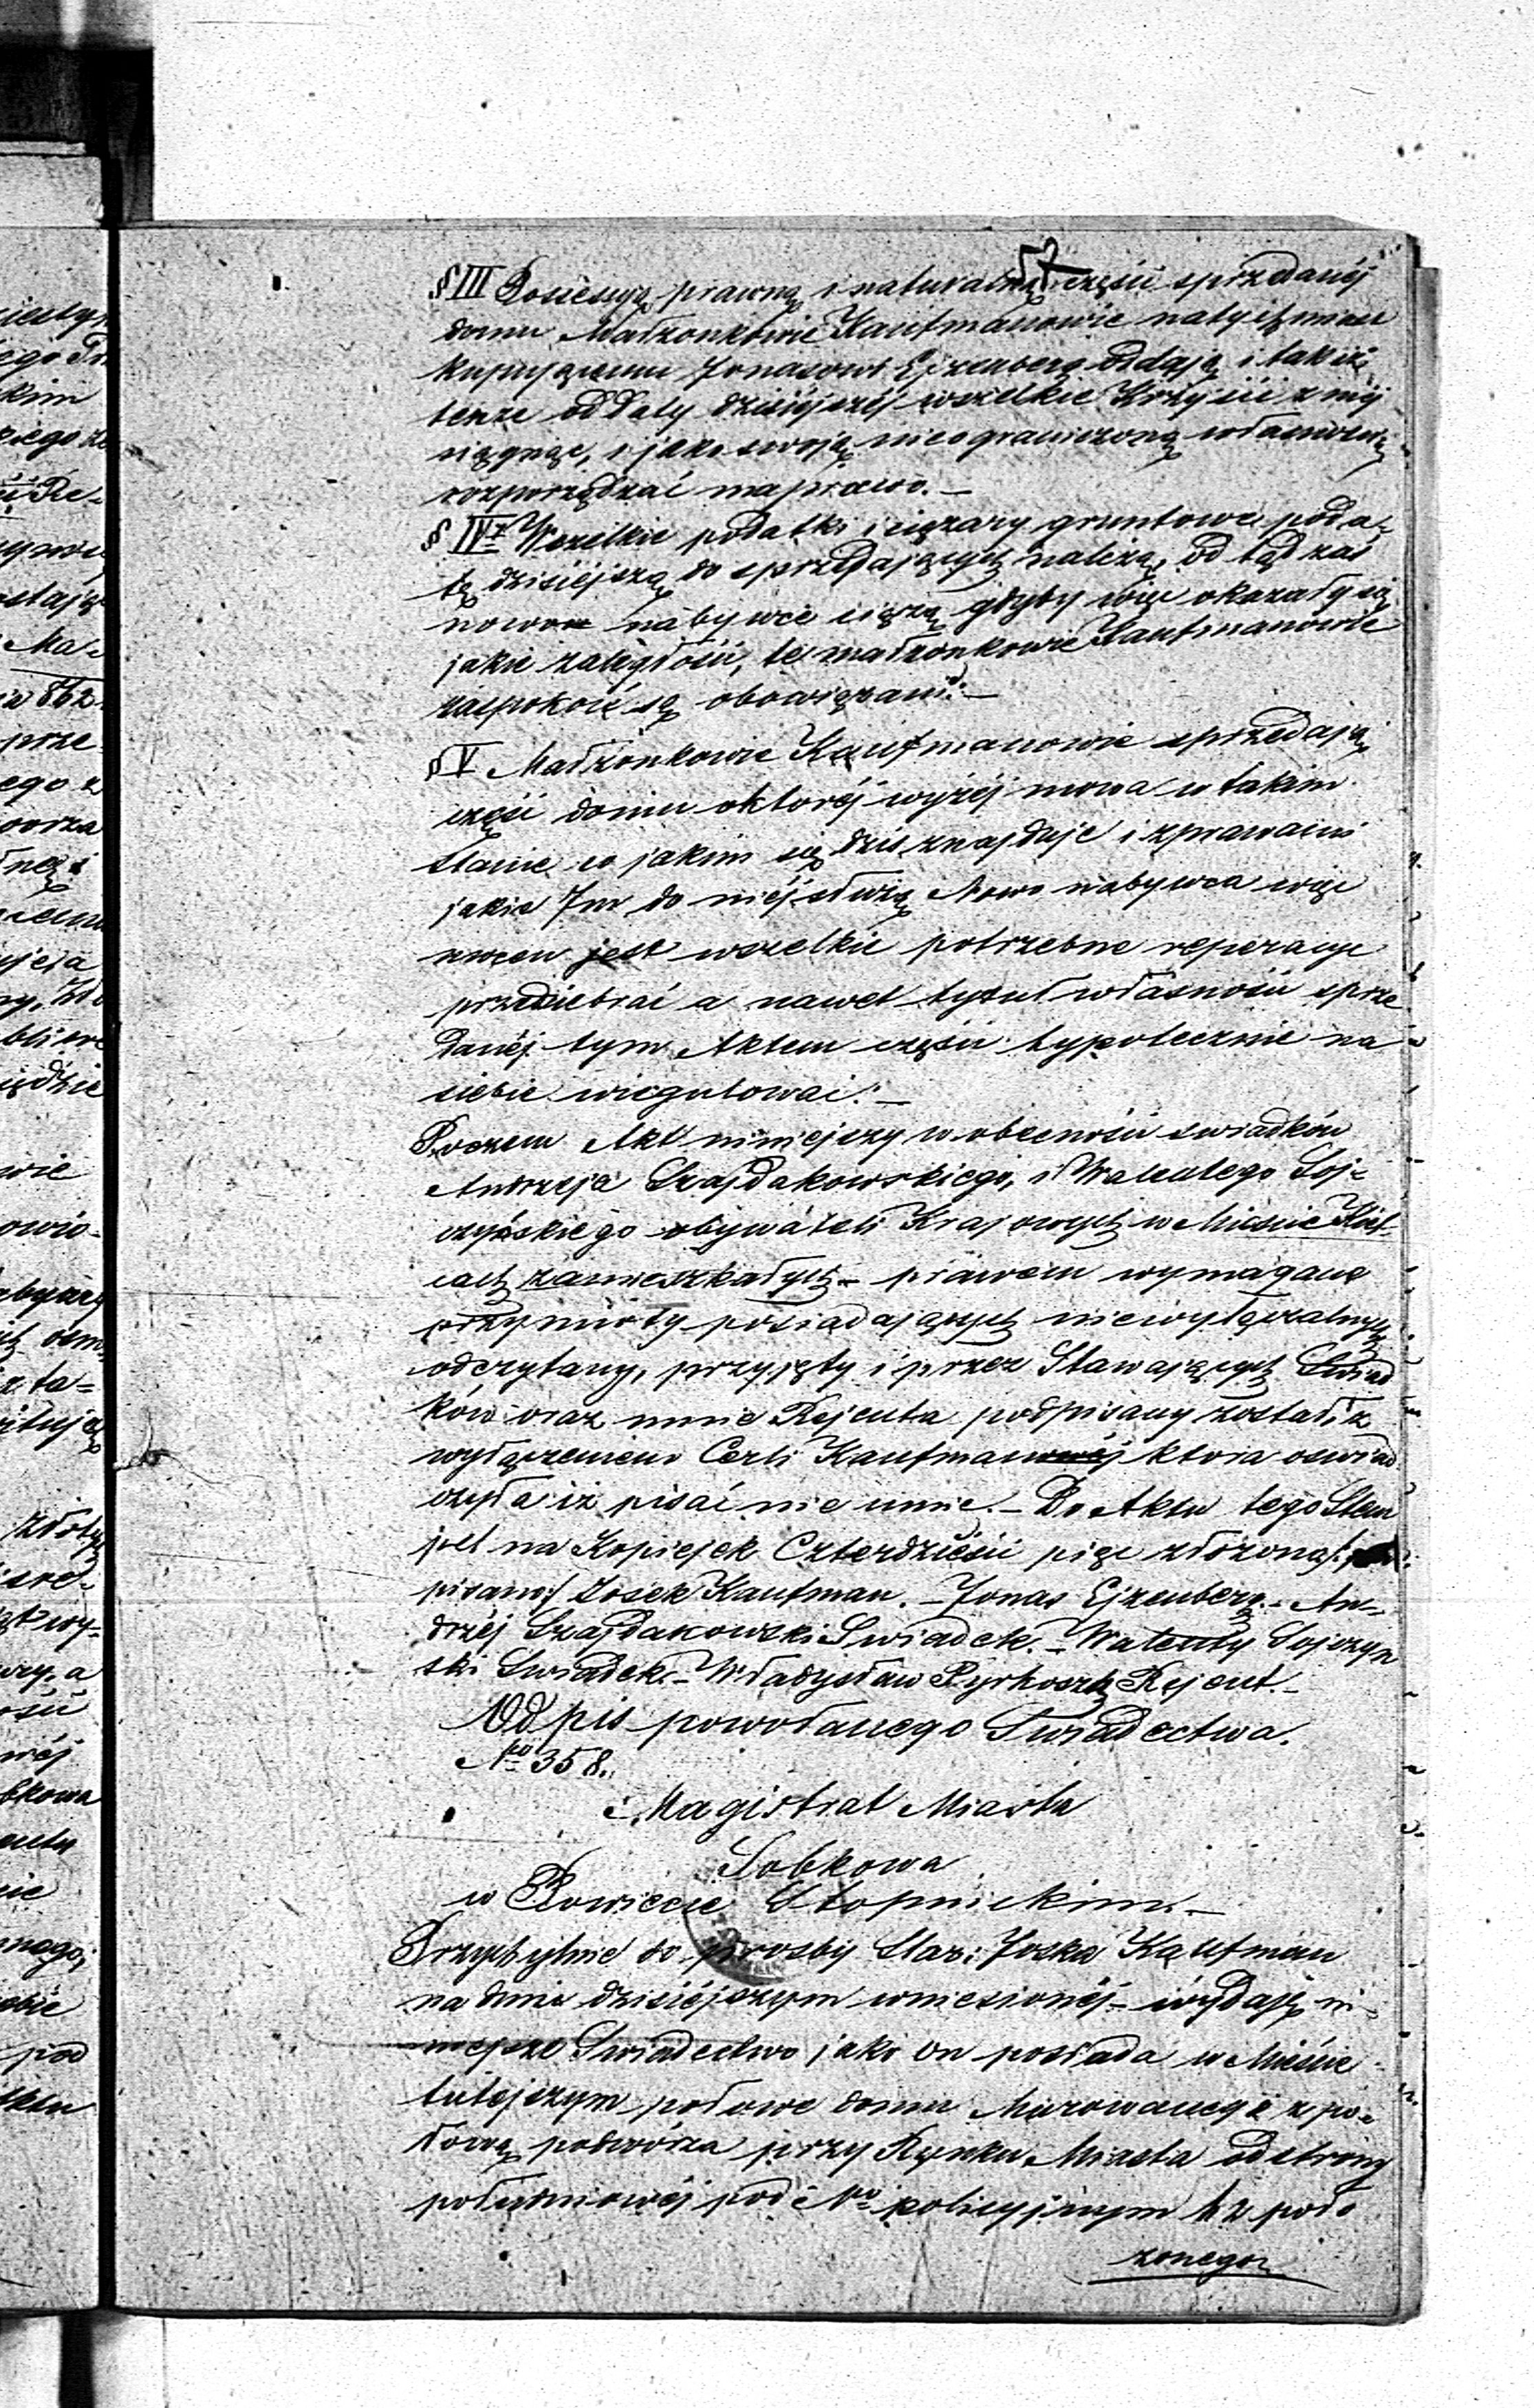 § III Possessyą prawną i naturalną części sprzedanéj
domu Małżonkowie Kaufmanowie natychmiast
kupującemu Jonasowi Ejzenberg oddają i takiż
tenże od daty dzisiéjszéj wszelkie Korzyści z niéj
ciągnąć, i jako swoją nieograniczoną własnością
rozporządzać ma prawo. —
§ IV Wszelkie podatki i ciężary gruntowe po da-
tę dzisiéjszą do sprzedających należą, od tąd zaś
nowo nabywcę ciążą, gdyby więc okazały się
jakie zaległości, te małżonkowie Kaufmanowie
zaspokoić są obowiązani. —
§ V Małżonkowie Kaufmanowie sprzedają
część domu o któréj wyżéj mowa w takim
stanie w jakim się dziś znajduje i z prawami
jakie Im do niéj służą. Nowo nabywca więc
mocen jest wszelkie potrzebne reperacye
przedsiebrać a nawet tytuł własności sprze
danéj tym Aktem części hypotecznie na
siebie uregulować. —
Poczem Akt niniejszy w obecności swiadków
Andrzeja Szajdakowskiego, i Walentego Soj-
czyńskiego obywateli Krajowych w Mieście Kiel-
cach zamieszkałych — prawem wymagane
przymioty posiadających niewyłączalnych
odczytany, przyjęty i przez Stawających Swiad
ków oraz mnie Rejenta podpisany został z
wyłączeniem Cerli Kaufman która oswiad
czyła iż pisać nie umie. — Do Aktu tego Stem
pel na Kopiejek Czterdzieści pięć złożono /:
pisano:/ Josek Kaufman. — Jonas Ejzenberg. — An-
drzéj Szajdakowski Swiadek. — Walenty Sojczyń
ski Swiadek. — Władysław Pyrkosz Rejent. —
Odpis powołanego Swiadectwa.
No 358.
Magistrat Miasta
Sobkowa
w Powiecie Stopnickim. —
Przychylnie do prosby Star: Joska Kaufman
na dniu dzisiéjszym wniesionéj — wydaję ni-
niejsze Swiadectwo jako On posiada w Mieście
tutejszym połowe domu Murowanego z po-
łową podwórza przy Rynku Miasta od strony
południowéj pod No policyjnym 42 poło
żonego